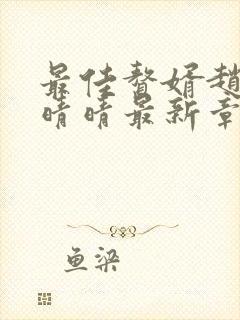 最佳赘婿趙
晴晴最新章
鱼梁